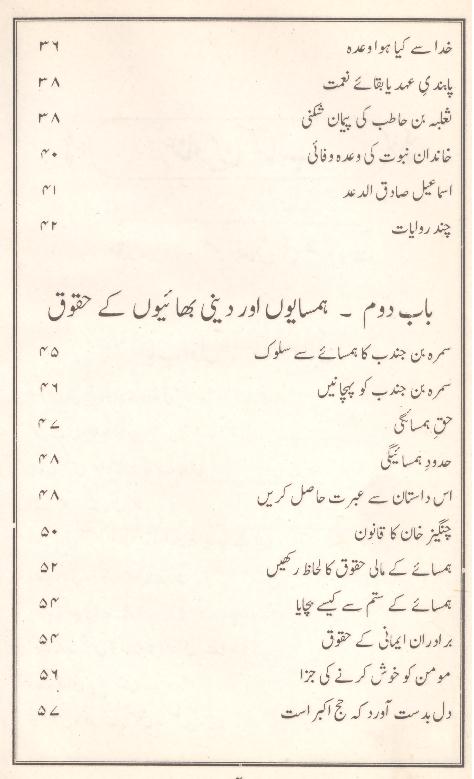 خدا سے کیا ہوا وعدہ ۳۶
پابندیِ عہد یا بقائے نعمت ۳۸
ثعلبہ بن حاطب کی پیمان شکنی ۳۸
خاندان نبوت کی وعدہ وفائی ۴۰
اسماعیل صادق الدعد ۴۱
چند روایات ۴۲
باب دوم ۔ ہمسایوں اور دینی بھائیوں کے حقوق
سمرہ بن جندب کا ہمسائے سے سلوک ۴۵
سمرہ بن جندب کو پہچانیں ۴۶
حقِ ہمسائگی ۴۷
حدودِ ہمسائیگی ۴۸
اس داستان سے عبرت حاصل کریں ۴۸
چنگیز خان کا قانون ۵۰
ہمسائے کے مالی حقوق کا لحاظ رکھیں ۵۲
ہمسائے کے ستم سے کیسے بچایا ۵۴
برادران ایمانی کے حقوق ۵۴
مومن کو خوش کرنے کی جزا ۵۶
دل بدست آورد کہ حج اکبر است ۵۷